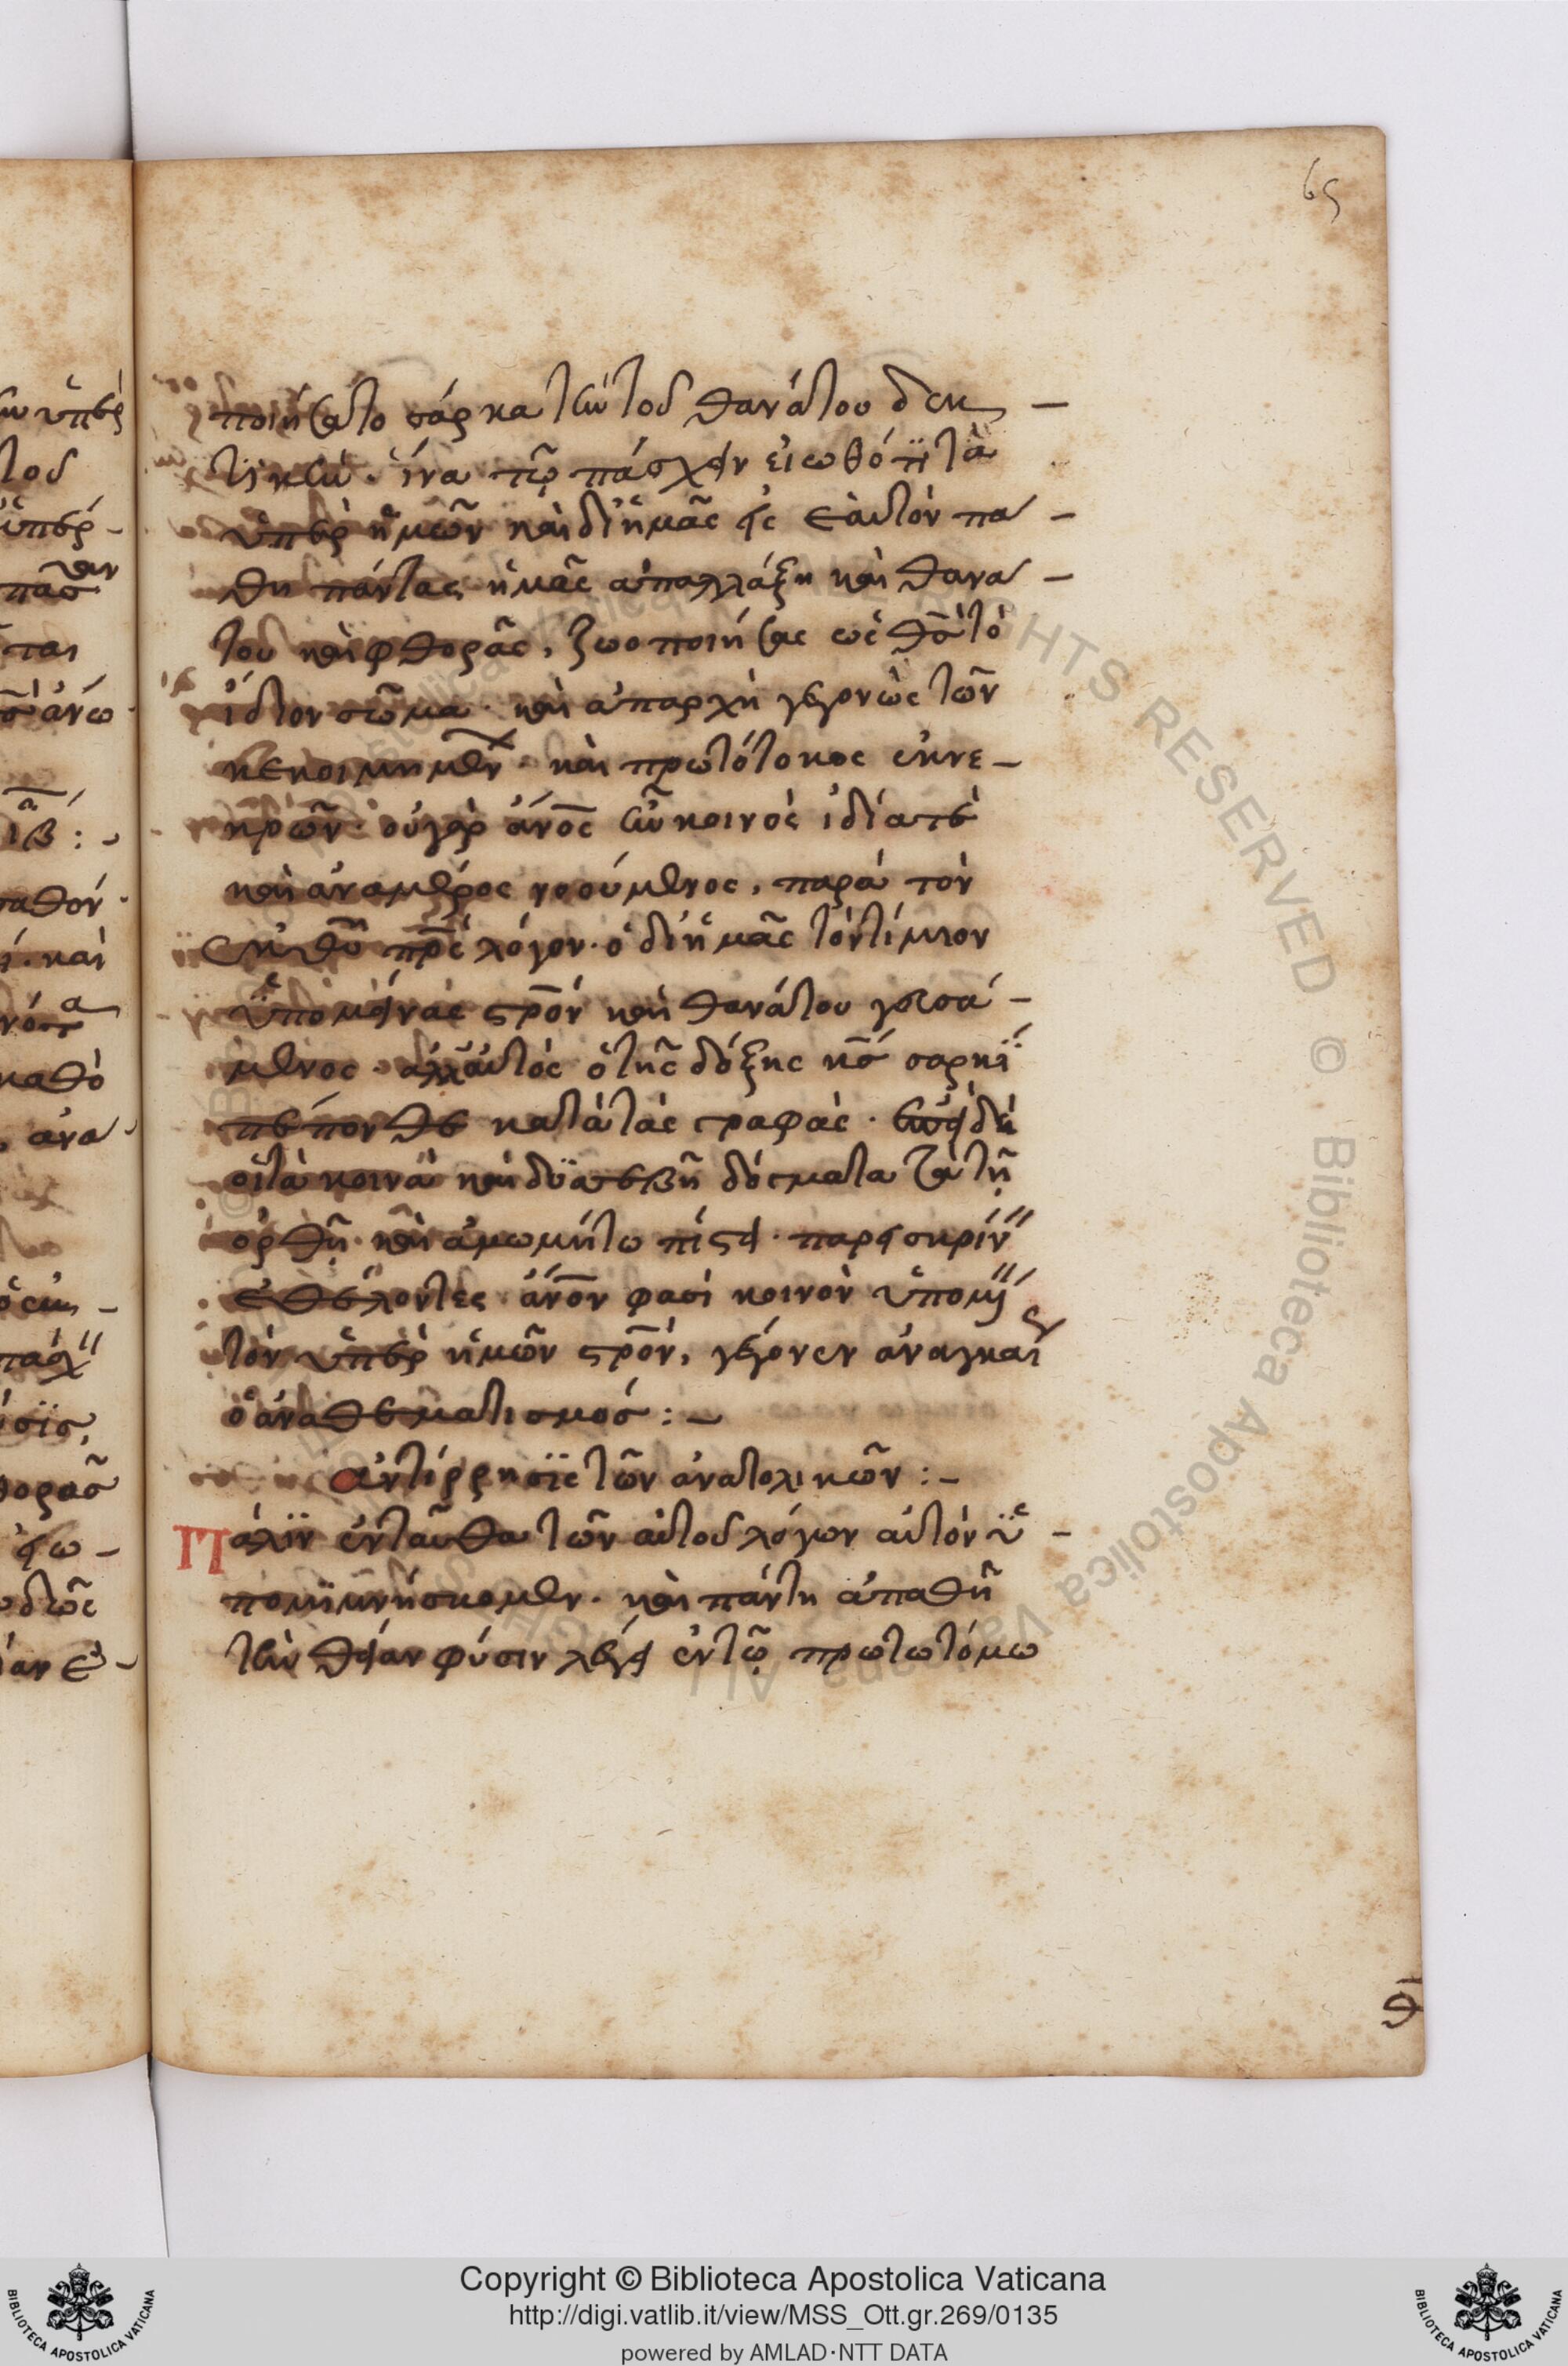 65
ποιήσατο σάρκα τὴν τοῦ θανάτου δεκ –
τικὴν. ἵνα τῶ πάσχειν εἰωθότι τὰ
ὑπὲρ ἡμῶν καὶ δι ἡμᾶς εἰς ἑαυτὸν πά –
θη πάντας ἡμᾶς ἀπαλλάξη καὶ θανά –
του καὶ φθορᾶς, ζωοποιήσας ὡς θσ̅ τὸ
ἴδιον σῶμα. καὶ ἀπαρχὴ γεγονὼς τῶν
κεκοιμημέν. καὶ πρωτότοκος ἐκ νε –
κρῶν. οὐ γὰρ ἄνο̅ς ἦν κοινὸς ἰδία τὲ
καὶ ἀναμέρος νοούμενος, παρὰ τὸν
ἐκ θυ̅ πρ̅ς λόγον. ὁ δι ἡμᾶς τὸν τίμιον
ὑπομείνας ςρ̅ον καὶ θανάτου γευσά –
μενος. ἀλλ αὐτὸς ὁ τῆς δόξης κσ̅ σαρκὶ
πέπονθε κατὰ τὰς γραφάς. ἐπειδὴ
οἱ τὰ κοινὰ καὶ δυσεβῆ δόγματα τῆ
ὀρθῆ καὶ ἀμωμήτω πίστει παρεισκρίν
ἐθέλοντες ἄνο̅ν φασὶ κοινὸν ὑπομεῖ
τὸν ὑπὲρ ἡμῶν ςρ̅ον, γέγονεν ἀναγκαῖ
ὁ ἀναθεματισμόσ : –
ἀντίρρησις τῶν ἀνατολικῶν : –
Πάλιν ἐνταῦθα τῶν αὐτοῦ λόγων αὐτὸν ὑ –
πομιμνήσκομεν. καὶ πάντη ἀπαθῆ
τὴν θείαν φύσιν λέγει ἐν τῶ πρώτω τόμω
θ̅
RIGHTS RESERVED © Biblioteca Apostolica Vaticana
Copyright © Biblioteca Apostolica Vaticana
http://digi.vatlib.it/view/MSS_Ott.gr.269/0135
powered by AMLAD·NTT DATA
BIBLIOTECA APOSTOLICA VATICANA
BIBLIOTECA APOSTOLICA VATICANA